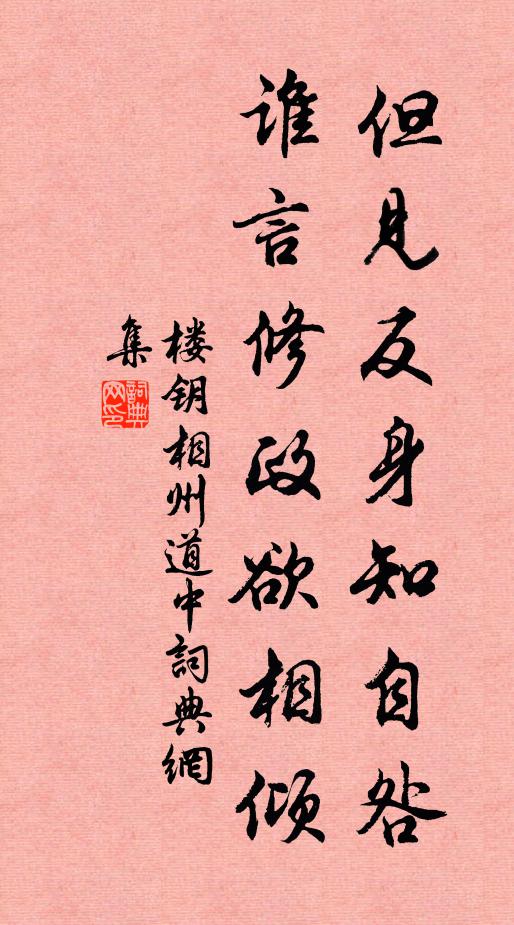 但見反身知自咎
谁言修政欲相倾
楼钥相州道中詞典網
集
詞典
网印